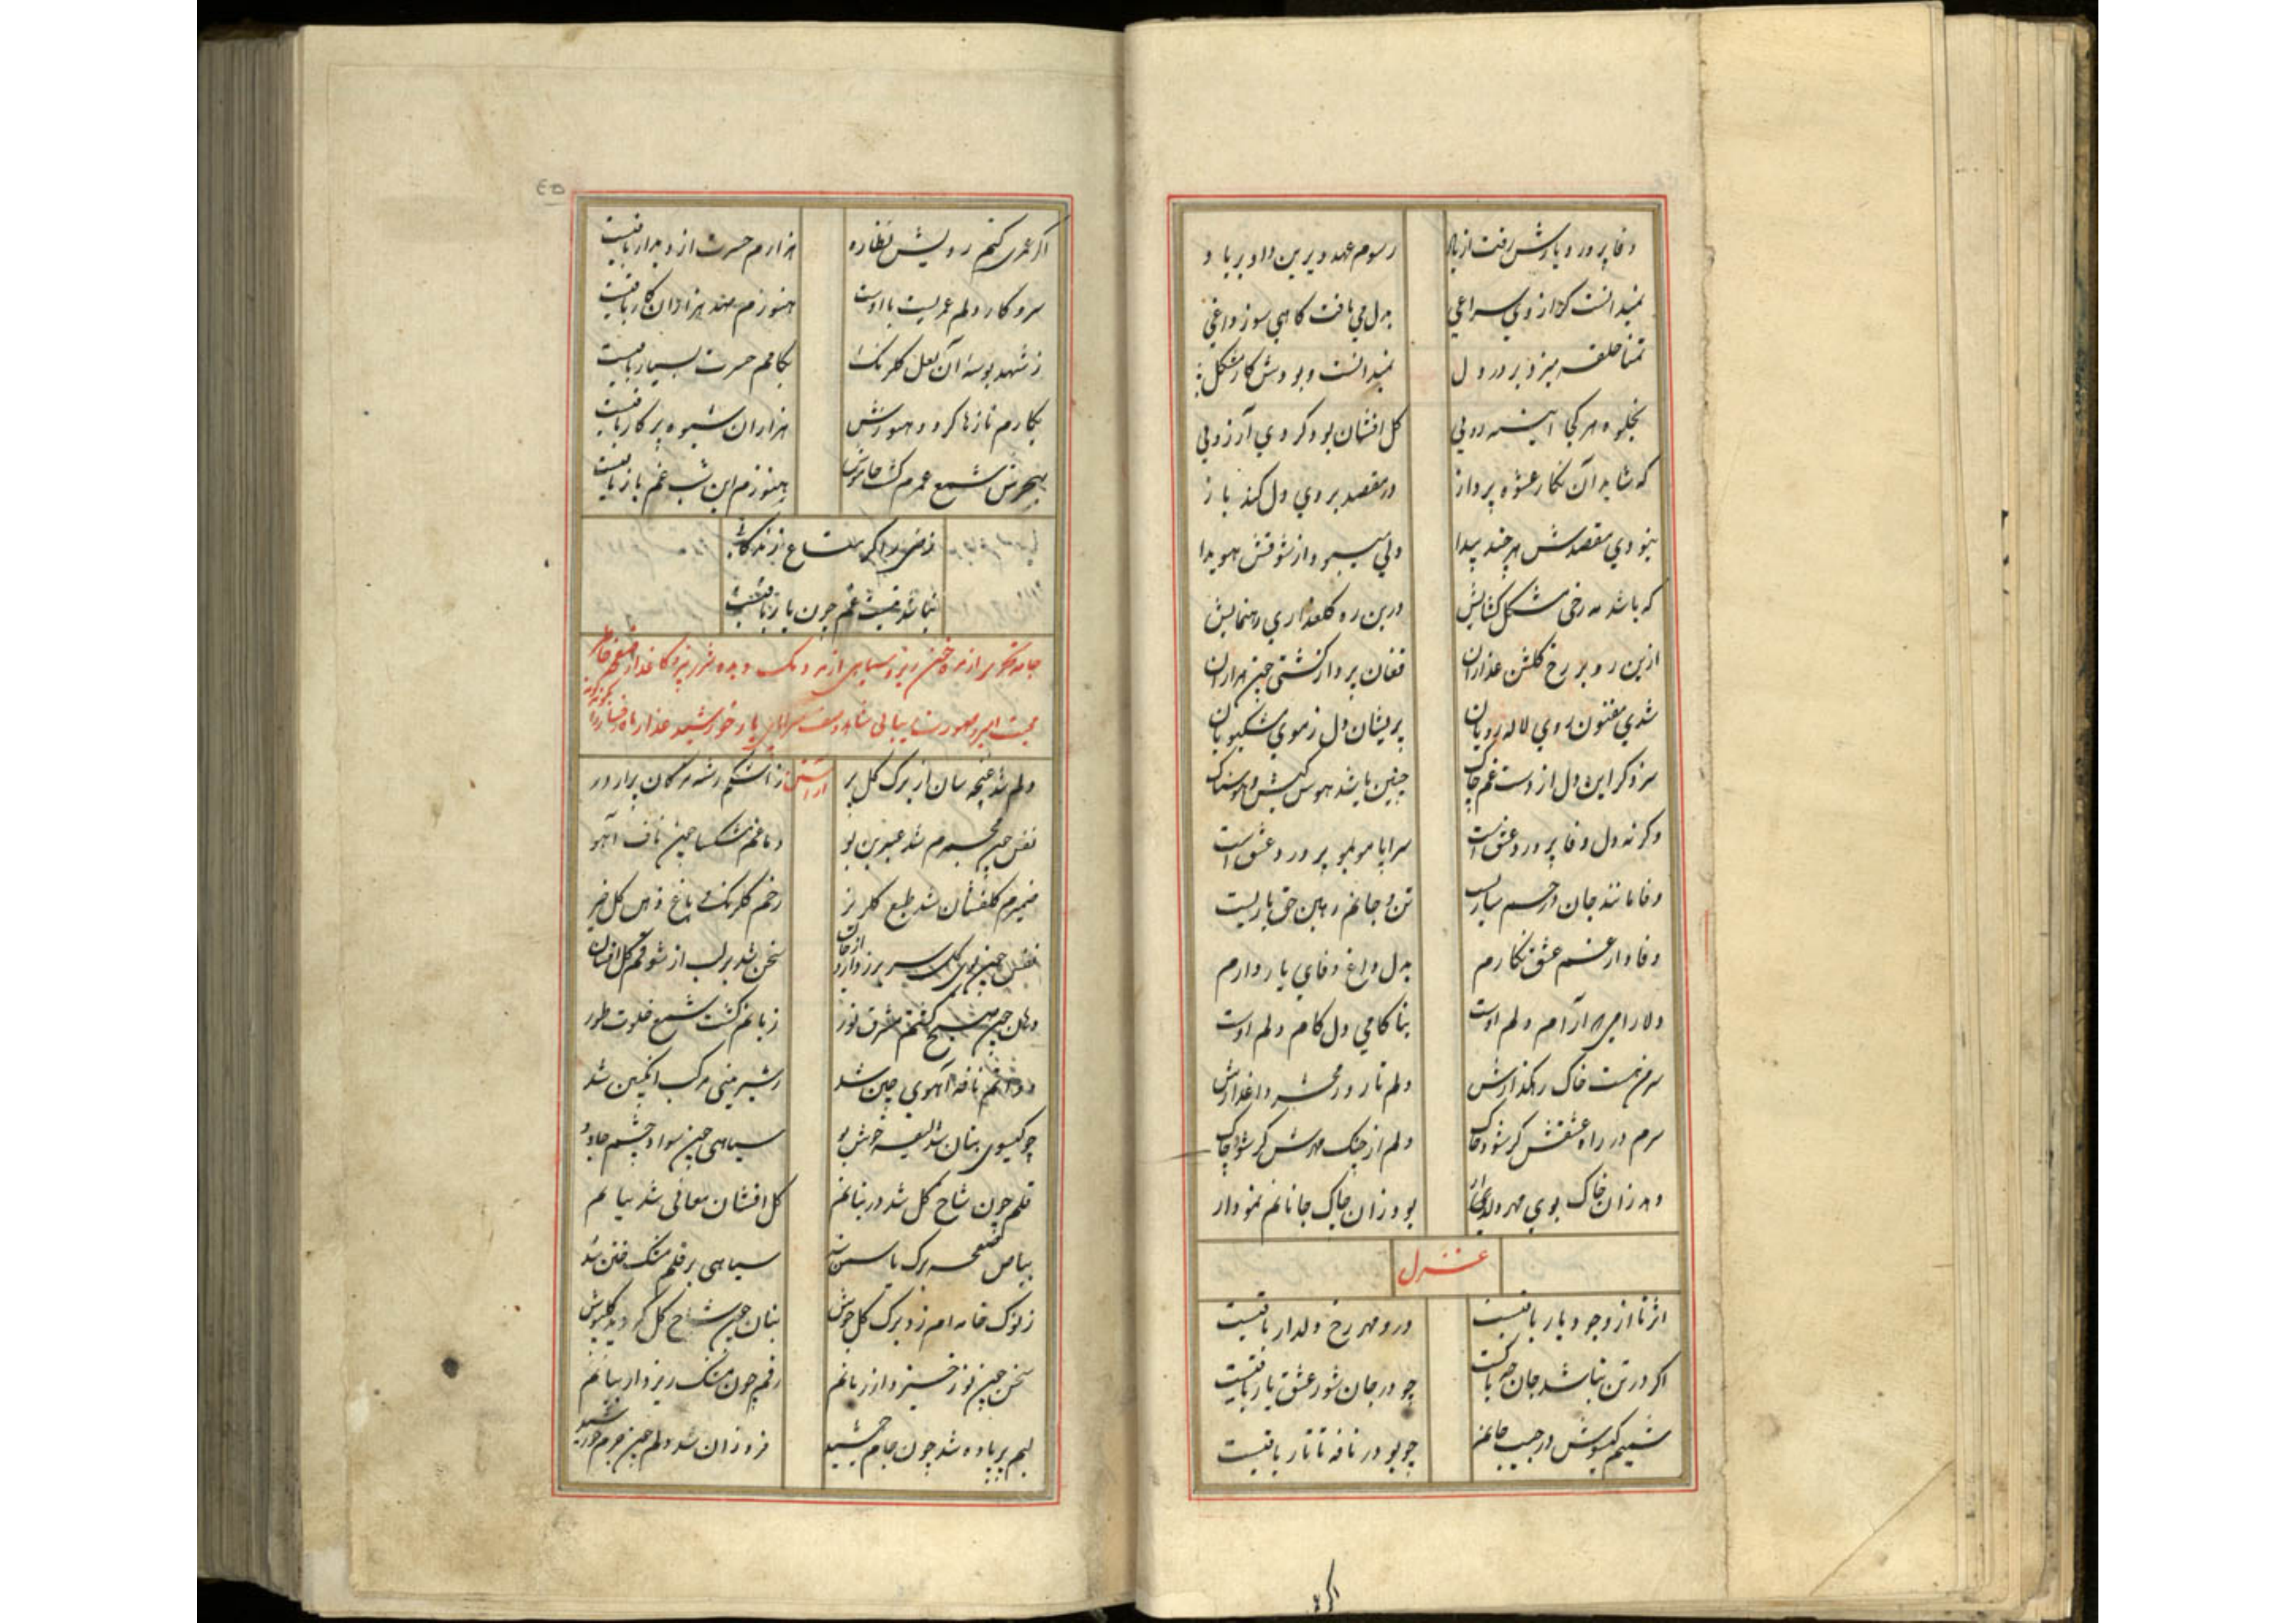 وفا پرور و یارش رفت از یاد رسوم عهد دیرین داد بر باد
نمیدانست کز آرزوی سراغی بدل می یافت گاهی سوز داغی
تمنا حلقه میزد بر در دل نمیدانست و بودش کار مشکل
بجلوه هر کجا آیینه رویی گل افشان بود کردی آرزویی
که شاید آن نگار عشوه پرداز در مقصد بروی دل کند باز
نبودی مقصدش هر چند پیدا ولی میبود از شوقش هویدا
که باشد مه رخی مشکل گشایش درین ره گلعذاری رهنمایش
ازین رو بر رخ گلشن عذاران فغان پرداز گشتی چون هزاران
شدی مفتون روی لاله رویان پریشان دل ز موی مشکبویان
سزد کر این دل از دست غم چاک چنین باشد هوس کیش و هوسناک
وگرنه دل وفا پرورد عشق است سراپا مو بمو پر درد عشق است
وفا مانند جان در جسم ساریست تن و جانم رهین حق یاریست
وفادار غم عشق نگارم بدل داغ وفای یار دارم
دلارامی هر آرام دلم اوست بناکامی دل کام دلم اوست
سر من هست خاک رهگذارش دلم تا روز محشر داغدارش
سرم در راه عشقش گر شود خاک دلم از چنگ مهرش گر شود چاک
دهد زان خاک بوی مهر دلدار بود زان چاک جانانم نمودار
غزل
اثر تا از وجود یار باقیست در و مهر رخ دلدار باقیست
اگر در تن نباشد جان چه باکست چو در جان شور عشق یار باقیست
شمیم گیسوش در جیب جانم چو بو در نافه تاتار باقیست
اگر عمری
اگر عمری کنم رویش نظاره هزارم حسرت از دیدار باقیست
سر و کار دلم عمریست با اوست هنوزم صد هزاران کار باقیست
ز شهد بوسه آن لعل گلرنگ بکامم حسرت بسیار باقیست
بکارم نازها کرد و هنوزش هزاران شیوه پرکار باقیست
بهجرش شمع عمرم گشت خاموش هنوزم این شب غم باز باقیست
ز من را گر متاع زندگانی
نباشد نیست غم چون یار باقیست
دلم شد غنچه سان از برگ گل پر ز اشکم رشته مژگان پر از در
نفس چون مجمرم شد عنبرین بو دماغم مشکسا چون ناف آهو
ضمیرم گلفشان شد طبع گلریز رخم گلرنگ باغ ذهن گل خیز
نفس چون بوی گل سر برزد از جان سخن شد بر لب از شوقم گل افشان
دهان چون صبح گشتم مشرق نور زبانم گشت شمع خلوت طور
دواتم نافه آهوی چین شد ز شیرینی مرکب انگبین شد
چو گیسوی بتان شد لیقه خوش بو سیاهی چون سواد چشم جادو
قلم چون شاخ گل شد در بنانم گل افشان معانی شد بیانم
بیاض صفحه برگ یاسمن شد سیاهی بر قلم مشک ختن شد
ز نوک خامه ام زد برگ گل جوش بنان چون شاخ گل گردید گلپوش
سخن چون نور خیزد از زبانم رقم چون مشک ریزد از بیانم
لبم پر باده شد چون جام جمشید فروزان شد دلم چون جرم خورشید